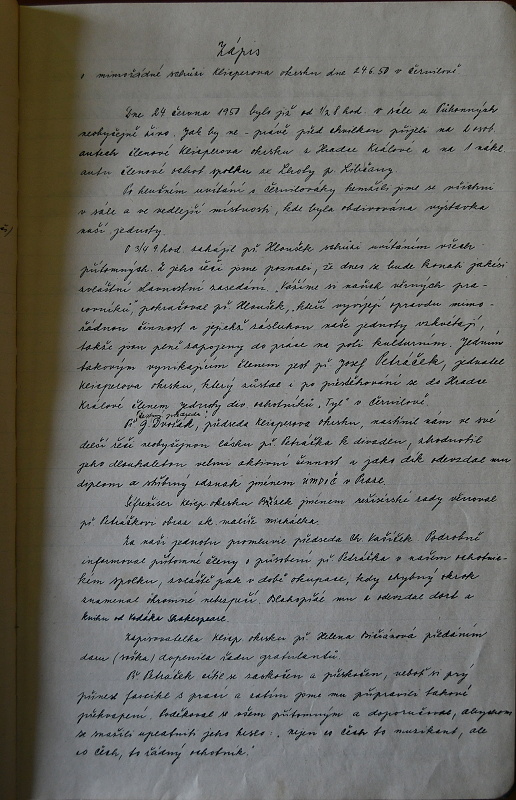 Zápis
o mimořádné schůzi Klicperova okrsku dne 24.6.50 v Černilově
Dne 24 června 1950 bylo již od 1/2 8 hod. v sále u
neobyčejně živo. Jak by ne - právě před chvilkou přijeli na 2 osob.
autech členové Klicperova okrsku z Hradce Králové a na 1 nákl.
autu členové ochot. spolku ze Lhoty p. Libčany.
Po hlučném uvítání s Černilováky hemžili jsme se všichni
v sále a ve vedlejší místnosti, kde byla obdivována výstavka
naší jednoty.
O 3/4 9 hod. zahájil př. Hloušek schůzi uvítáním všech
přítomných. Z jeho řeči jsme poznali, že dnes se bude konati jakési
zvláštní slavnostní zasedání. "Vážíme si našich věrných pra-
covníků", pokračoval př. Hloušek, "kteří vyvíjejí opravdu mimo-
řádnou činnost a jejichž zásluhou naše jednoty vzkvétají,
takže jsou plně zapojeny do práce na poli kulturním. Jedním
takovým vynikajícím členem jest př. Josef Petráček, jednatel
Klicperova okrsku, který zůstal i po přestěhování se do Hradce
Králové členem jednoty div. ochotníků "Tyl" v Černilově.
Př. J. Dvořák, předseda Klicperova okrsku, nastínil nám ve své
delší řeči neobyčejnou lásku př. Petráčka k divadlu, zhodnotil
jeho dlouholetou velmi aktivní činnost a jako dík odevzdal mu
diplom a stříbrný odznak jménem ÚMDOČ v Praze.
Šéfrežisér Klicp. okrsku jménem režisérské rady věnoval
př. Petráčkovi obraz ak. malíře Michálka.
Za naši jednotu promluvil předseda Podrobně
informoval přítomné členy o působení př. Petráčka v našem ochotnic-
kém spolku, zvláště pak v době okupace, kdy chybný krok
znamenal ohromné nebezpečí. Blahopřál mu a odevzdal dort a
knihu od Shakespeare.
Zapisovatelka Klicp. okrsku př. Helena předáním
daru (soška) doplnila řadu gratulantů.
Př. Petráček cítil se zaskočen a přeskočen, neboť si prý
přinesl fascikl s prací a zatím jsme mu připravili takové
překvapení. Poděkoval se všem přítomným a doporučoval, abychom
se snažili uplatniti jeho heslo: "nejen co Čech to muzikant, ale
co Čech, to řádný ochotník."